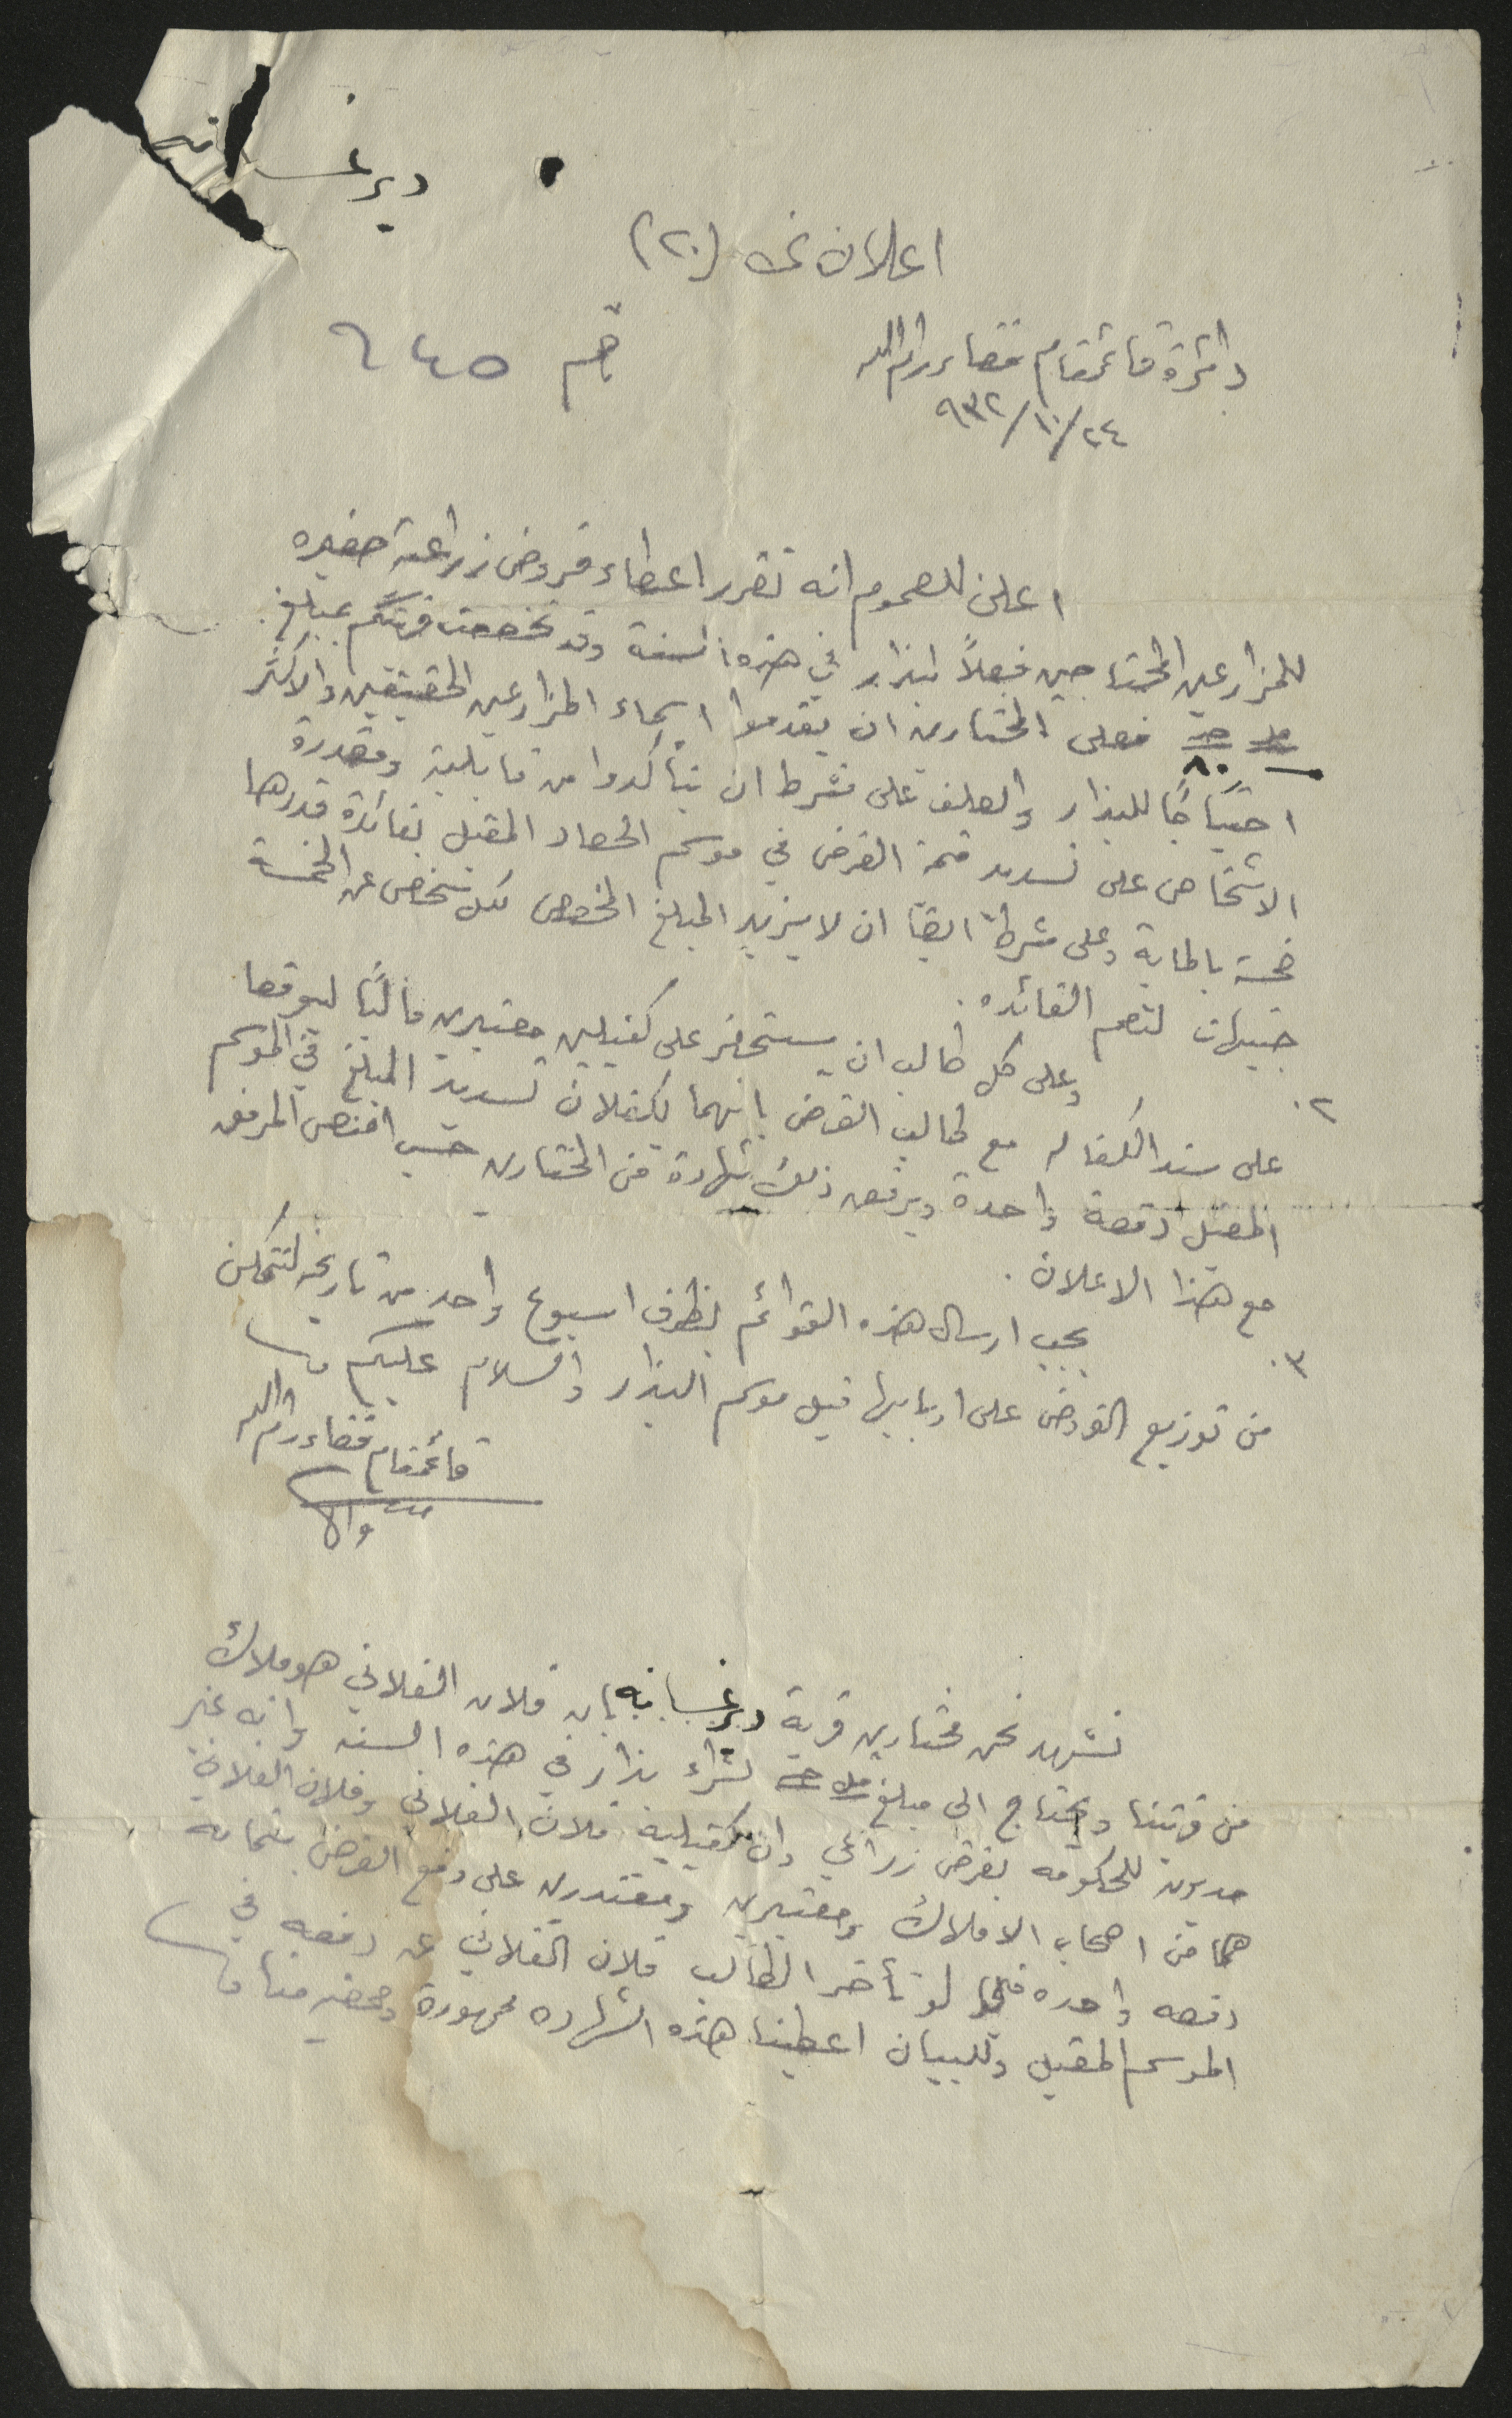 دير غسانه
اعلان نمره (٢٠)
دائرة قائمقام قضاء رام الله
٢٤/١٠/٩٣٢
اعلن للعموم انه تقرر اعطاء قروض زراعية صغيره
للمزارعين المحتاجين فعلاً لبذار في هذه السنة وقد تخصصت قريتكم بمبلغ
مل جـ ٨٠ فعلى المختارين ان يقدموا اسماء المزارعين الحقيقيين والاكثر
احتياجًا للبذار والعلف على شرط ان يتأكدوا من قابلية ومقدرة
الاشخاص على تسديد قيمة القرض في موسم الحصاد المقبل بفائدة قدرها
خمسة بالماية وعلى شرط ايضًا ان لا يزيد المبلغ المخصص لكل شخص عن الخمسة
جنيهات لتعم الفائده.
٢. وعلى كل طالب ان يستحضر على كفيلين معتبرين ماليًا ليوقعا
على سند الكفاله مع طالب القرض بانهما يكفلان تسديد المبلغ في الموسم
المقبل دفعة واحدة ويرفق ذلك بشهادة من المختارين حسب النص المرفق
مع هذا الاعلان.
٣. يجب ارسال هذه القوائم بظرف اسبوع واحد من تاريخه لنتمكن
من توزيع القروض على اربابها قبل موسم البذار والسلام عليكم
قائمقام قضاء رام الله
نشهد نحن مختارين قرية دير غسانه بان فلان الفلاني هو ملاك
من قريتنا ويحتاج الى مبلغ مل جـ لشراء بذار في هذه السنه وانه غير
مديون للحكومه بقرض زراعي وان كفيليه فلان الفلاني وفلان الفلاني
هما من اصحاب الاملاك ومعتبرين ومقتدرين على دفع القرض بتمامه
دفعه واحده فيما لو تأخر الطالب فلان الفلاني عن دفعه في
الموسم المقبل وللبيان اعطينا هذه الشهاده ممهورة